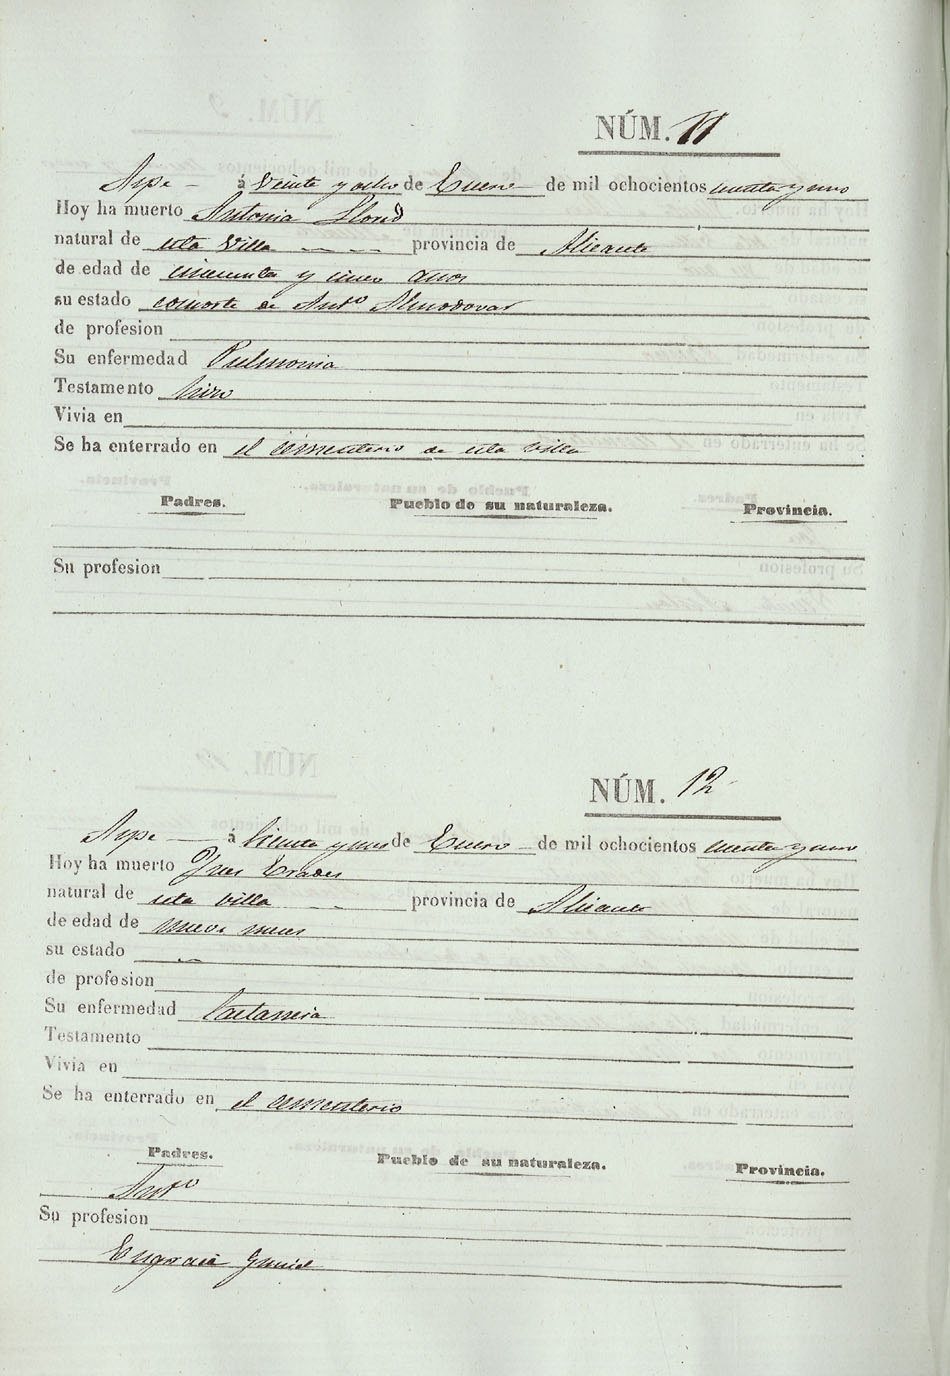 NÚM. 11
Aspe á Veinte y ocho de Enero de mil ochocientos cuarenta y uno
Hoy ha muerto Antonia
natural de esta Villa provincia de Alicante
de edad de cincuenta y cinco años
su estado consorte de Antº Almodovar
de profesion
Su enfermedad Pulmonia
Testamento hizo
Vivia en
Se ha enterrado en el cementerio de esta villa
Padres. Pueblo de su naturaleza. Provincia.
Su profesion
NÚM. 12
Aspe á de Enero de mil ochocientos cuarenta y uno
Hoy ha muerto
natural de esta villa provincia de Alicante
de edad de nueve meses
su estado
de profesion
Su enfermedad
Testamento
Vivia en
Se ha enterrado en el cementerio
Padres. Pueblo de su naturaleza. Provincia.
Antº
Su profesion
Engracia